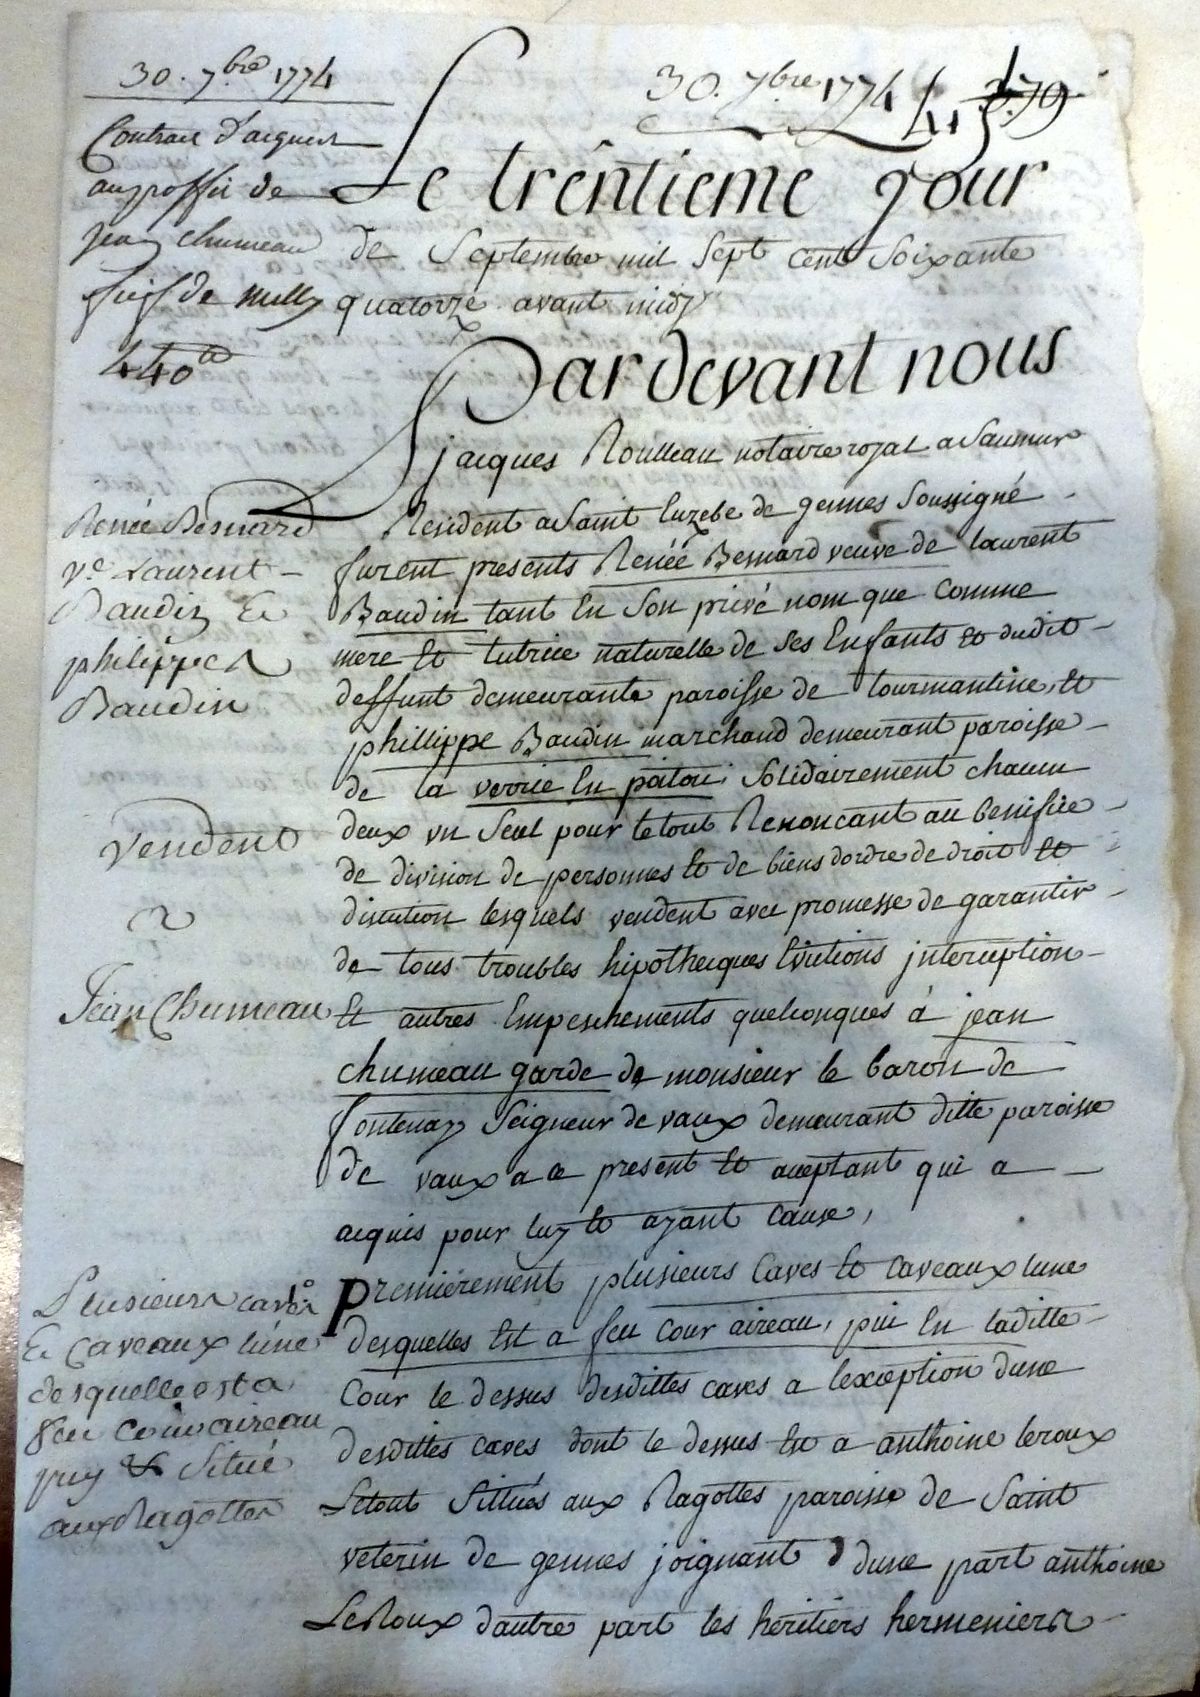 30. 7bre 1774
Contrat d'acquest
au proffit de
jean chumeau
fief de milly
440tt
30. 7bre 1774
Le trentieme jour
de Septembre mil Sept cent Soixante
quatorze avant midy
Pardevant nous
jacques Roulleau notaire royal a Saumur
Resident a Saint Euzebe de gennes Soussigné
furent presents Renée Besnard veuve de laurent
Baudin tant En Son privé nom que comme
mere Et tutrice naturelle de Ses Enfants Et dudit
deffunt demeurante paroisse de tourmantine, Et
phillippe Baudin marchand demeurant paroisse
de la verrie En poitou Solidairement chacun
deux un Seul pour le tout Renoncant au benifice
de division de personnes Et de biens dordre de droit Et
discution lesquels vendent avec promesse de garantir
de tous troubles hipothecques Evictions jnteruption
Et autres Empeschements quelconques à jean
chumeau garde de monsieur le baron de
fontenay Seigneur de vaux demeurant ditte paroisse
de vaux a ce present Et aceptant qui a
acquis pour luy Et ayant cause,
Premierement plusieurs Caves Et caveaux lune
desquelles Est a feu cour aireau, puit En laditte
Cour le dessus desdittes caves a lexception dune
desdittes caves dont le dessus Est a anthoine leroux
Letout Sittués aux Ragottes paroisse de Saint
veterin de gennes joignant dune part anthoine
LeRoux dautre part les héritiers hermeniers
Renée Besnard
ve. Laurent
Baudin Et
philippe
Baudin
vendent
a
Jean Chumeau
Plusieurs caves
Et Caveaux lune
desquelle est a
feu cour aireau
puy & Situé
aux Ragottes